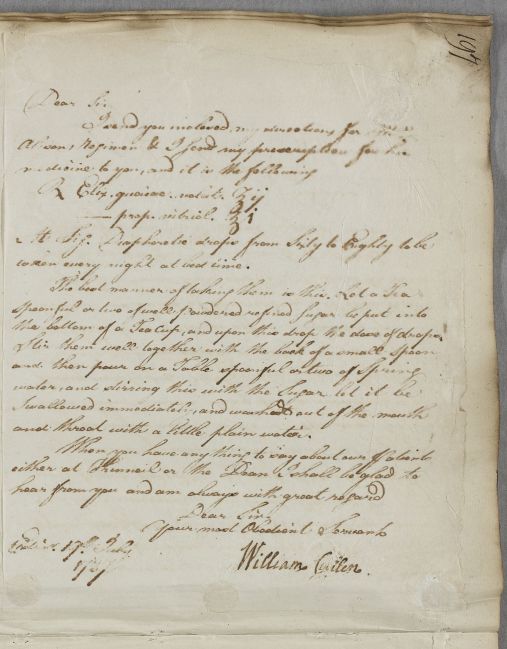 197
Dear Sir
I send you inclosed my directions for
Alisons Regimen & I send my prescription for his
medicine to you, and it is the following
℞ Elix. guaiac. volat. ℥ij
—— prop. vitriol. ℥i
M Sig. Diaphoretic drops from Sixty to Eighty to be
taken every night at bed time.
The best manner of taking them is this. Let a Tea
spoonful or two of well powdered refined Sugar be put into
the bottom of a Tea Cup, and upon this drop the dose of drops.
Stir them well together with the back of a small spoon
and then pour on a Table spoonful or two of Spring
water, and stirring this with the Sugar let it be
Swallowed immediately, and washed out of the mouth
and throat with a little plain water.
When you have any thing to say about our Patients
either at Kinneil or the Dean I shall be glad to
hear from you and am always with great regard
Dear Sir
Your most Obedient Servant
William Cullen.
Edinr. 17th July